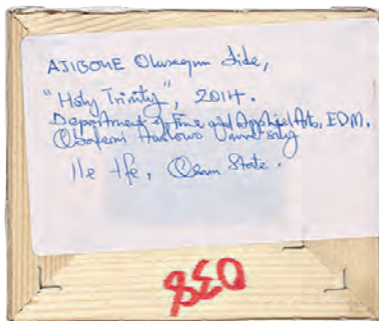 AJIBOYE Olusegun Jide,
"Holy Trinity", 2014.
Department of Fine and Applied Arts, EDM.
Obafemi Awolowo University
Ile Ife, Osun State.
038